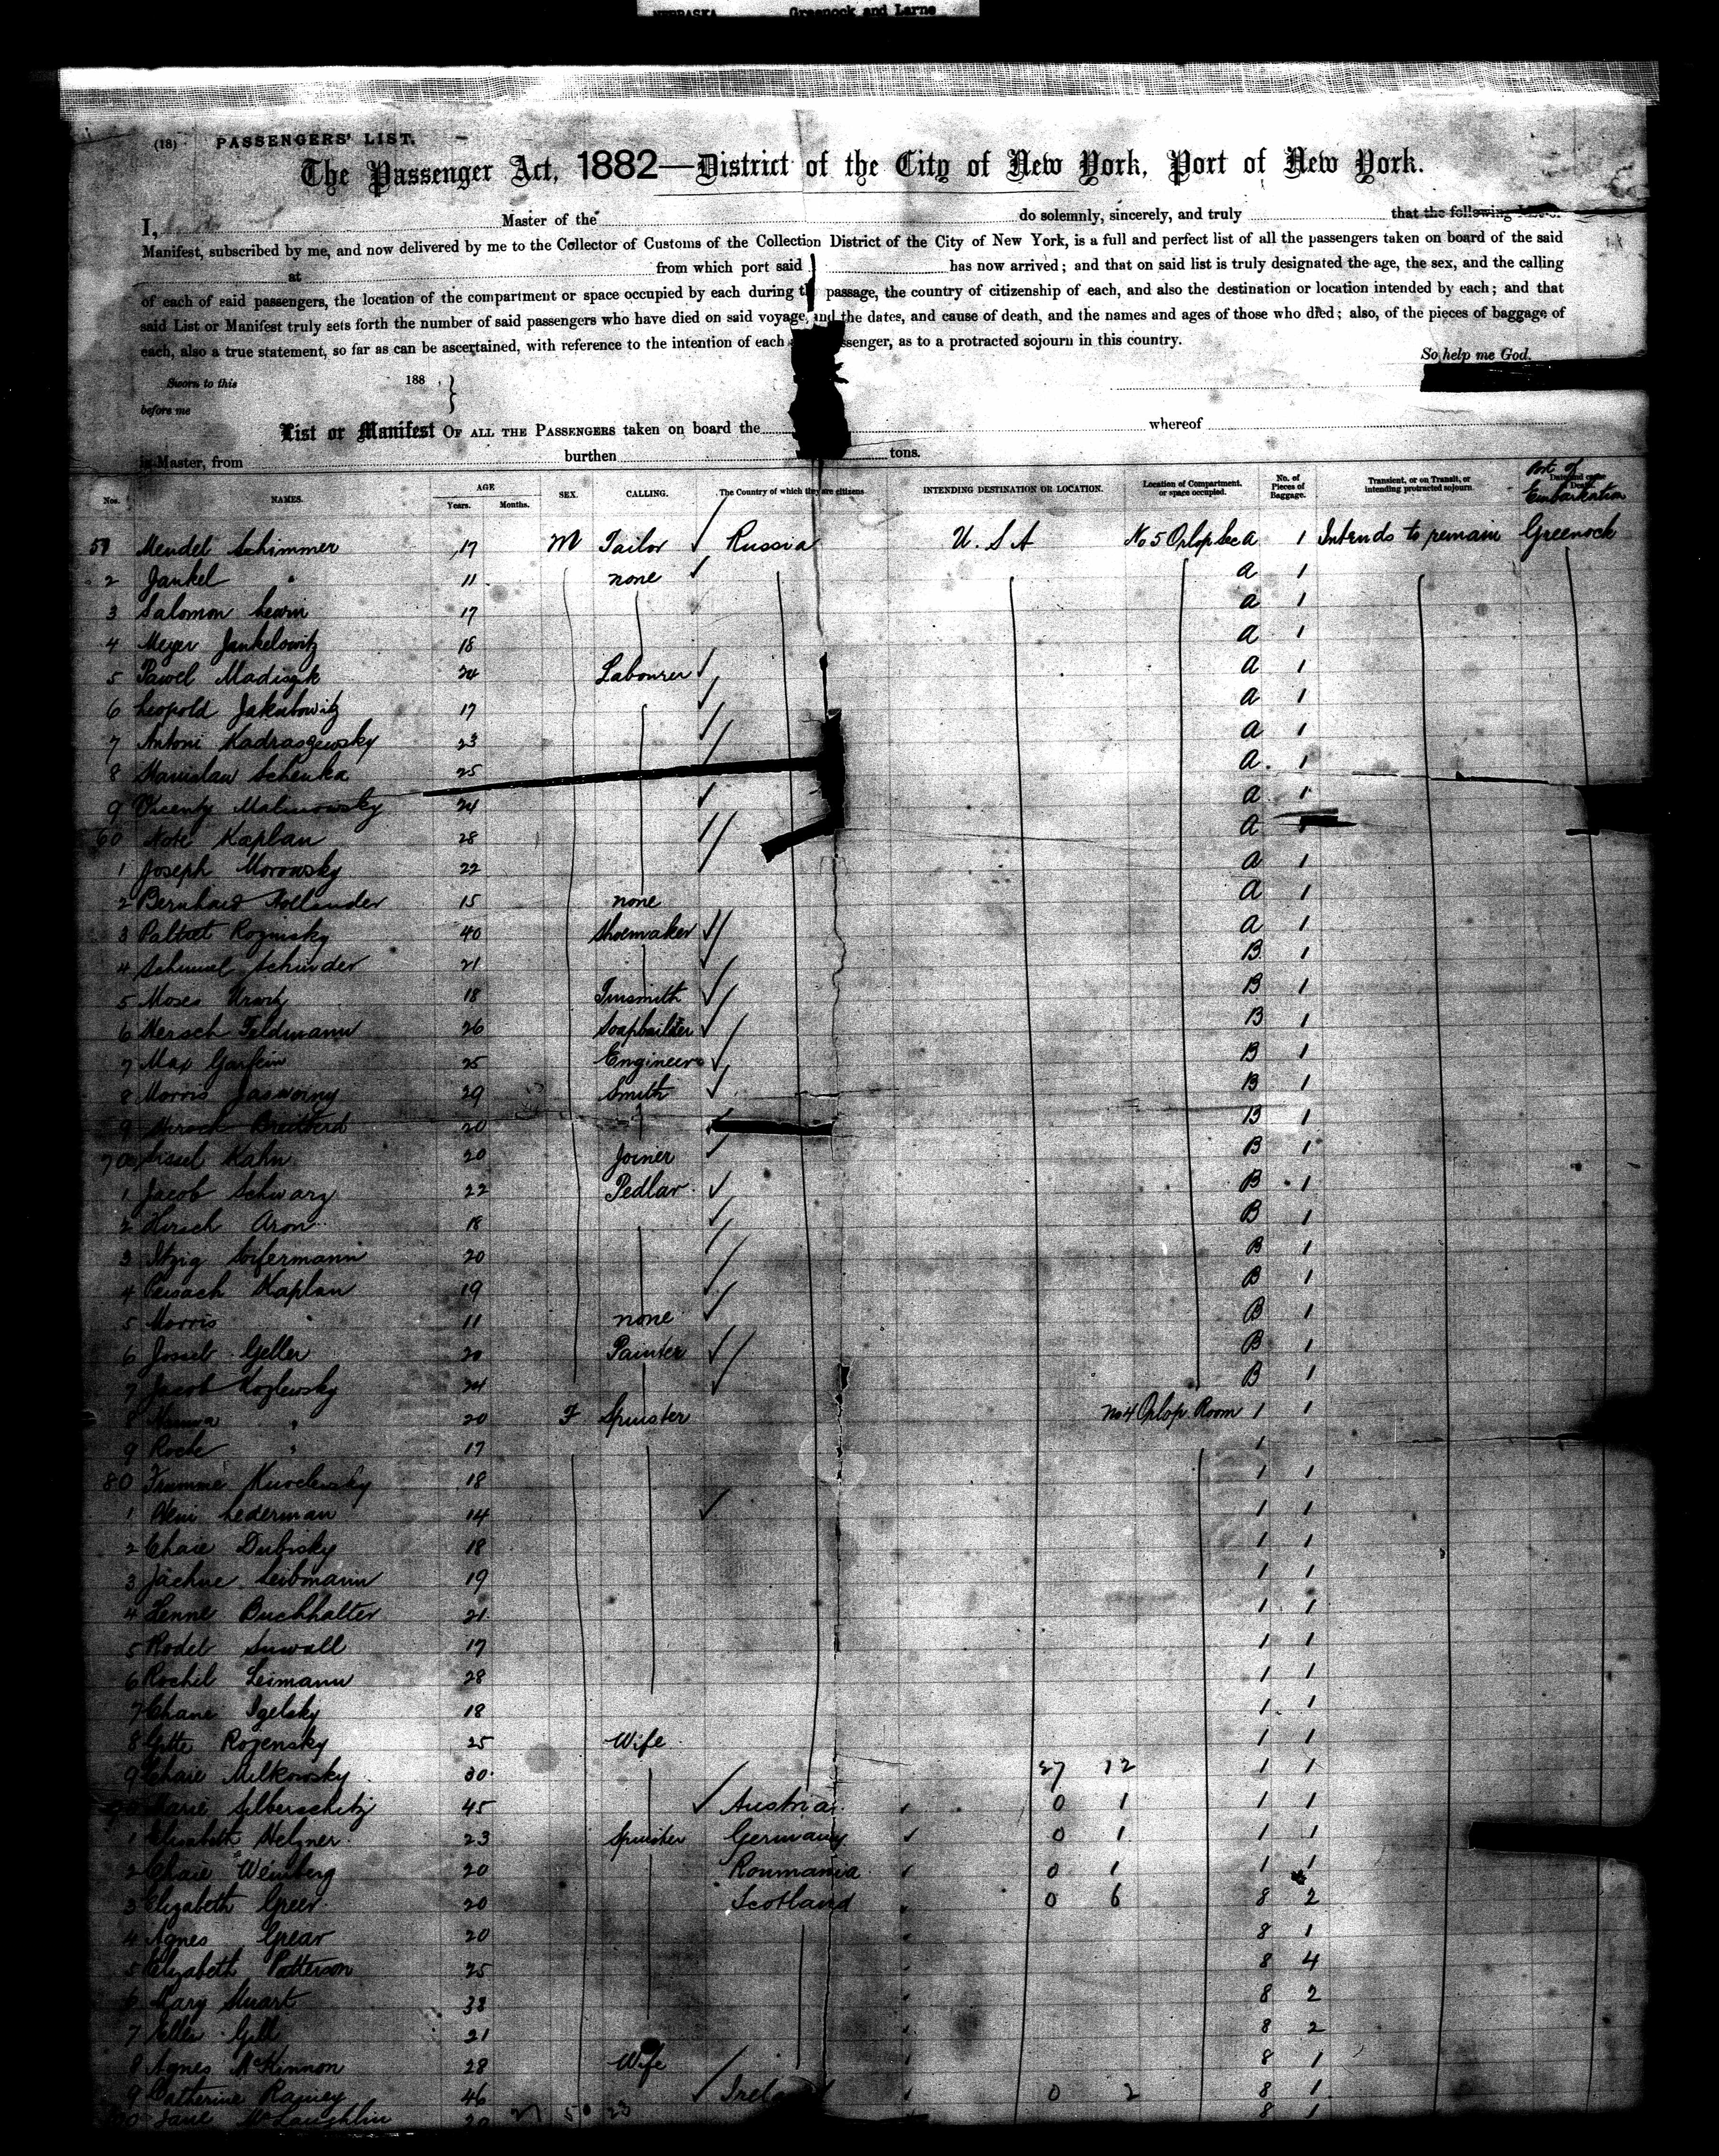 NEBRASKA Greenock and Larne
(18) PASSENGERS' LIST.
The Passenger Act, 1882—District of the City of New York, Port of New York.
I, Master of the do solemnly, sincerely, and truly that the following List or
Manifest, subscribed by me, and now delivered by me to the Collector of Customs of the Collection District of the City of New York, is a full and perfect list of all the passengers taken on board of the said
at from which port said has now arrived; and that on said list is truly designated the age, the sex, and the calling
of each of said passengers, the location of the compartment or space occupied by each during the passage, the country of citizenship of each, and also the destination or location intended by each; and that
said List or Manifest truly sets forth the number of said passengers who have died on said voyage, and the dates, and cause of death, and the names and ages of those who died; also, of the pieces of baggage of
each, also a true statement, so far as can be ascertained, with reference to the intention of each passenger, as to a protracted sojourn in this country.
So help me God.
Sworn to this 188 }
before me
List or Manifest OF ALL THE PASSENGERS taken on board the whereof
is Master, from burthen tons.
Nos. NAMES. AGE Years. Months. SEX. CALLING. The Country of which they are citizens INTENDING DESTINATION OR LOCATION. Location of Compartment, or space occupied. No. of Pieces of Baggage. Transient, or on Transit, or intending protracted sojourn. Port of Embarkation
51 Mendel Schimmer 17 M Tailor Russia U.S.A No 5 Orlop Sec A 1 Intends to remain Greenock
2 Jankel " 11 none A 1
3 Salomon 17 A 1
4 Meyer Jankelowitz 18 A 1
5 Pawel 24 Labourer A 1
6 Leopold Jakubowitz 17 A 1
7 Antoni Kadraszewsky 23 A 1
8 Stanislaw Schenka 25 A 1
9 Vicenty Malinowsky 24 A 1
60 Note Kaplan 28 A 1
1 Joseph Morowsky 22 A 1
2 Bernhard Hollander 15 none A 1
3 Rozinsky 40 Shoemaker A 1
4 Schmuel Schnider 21 B 1
5 Moses 18 Tinsmith B 1
6 Hersch Feldmann 26 B 1
7 Max Garfein 25 Engineer B 1
8 Morris 29 Smith B 1
9 20 B 1
70 Kahn 20 Joiner B 1
1 Jacob Schwarz 22 Pedlar B 1
2 Hirsch Aron 18 B 1
3 Itzig 20 B 1
4 Peisach Kaplan 19 B 1
5 Morris " 11 none B 1
6 Geller 20 Painter B 1
7 Jacob Kozlewsky 24 B 1
8 " 20 F Spinster No 4 Orlop Room 1 1
9 Rocke " 17 1
80 Frumme 18 1 1
1 Lederman 14 1 1
2 Chaie Dubisky 18 1 1
3 Jachne Leibmann 19 1 1
4 Henne Buchhalter 21 1 1
5 Rodel Suwall 17 1 1
6 Rochil Leimann 28 1 1
7 Chane Igelsky 18 1 1
8 Gitte Rozensky 25 Wife 1 1
9 Chaie Milkowsky 30 27 12 1 1
Marie Silberschitz 45 Austria 0 1 1 1
1 Elisabeth Helzner 23 Spinster Germany 0 1 1 1
2 Chaie Weinberg 20 Roumania 0 1 1 1
3 Elizabeth Greer 20 Scotland 0 6 8 2
4 Agnes Grear 20 8 1
5 Elizabeth Patterson 25 8 4
6 Mary Stuart 38 8 2
7 Ellen Gill 21 8 2
8 Agnes McKinnon 28 Wife 8 1
9 Catherine Rainey 46 Ireland 0 2 8 1
100 Jane McLaughlin 20 8 1